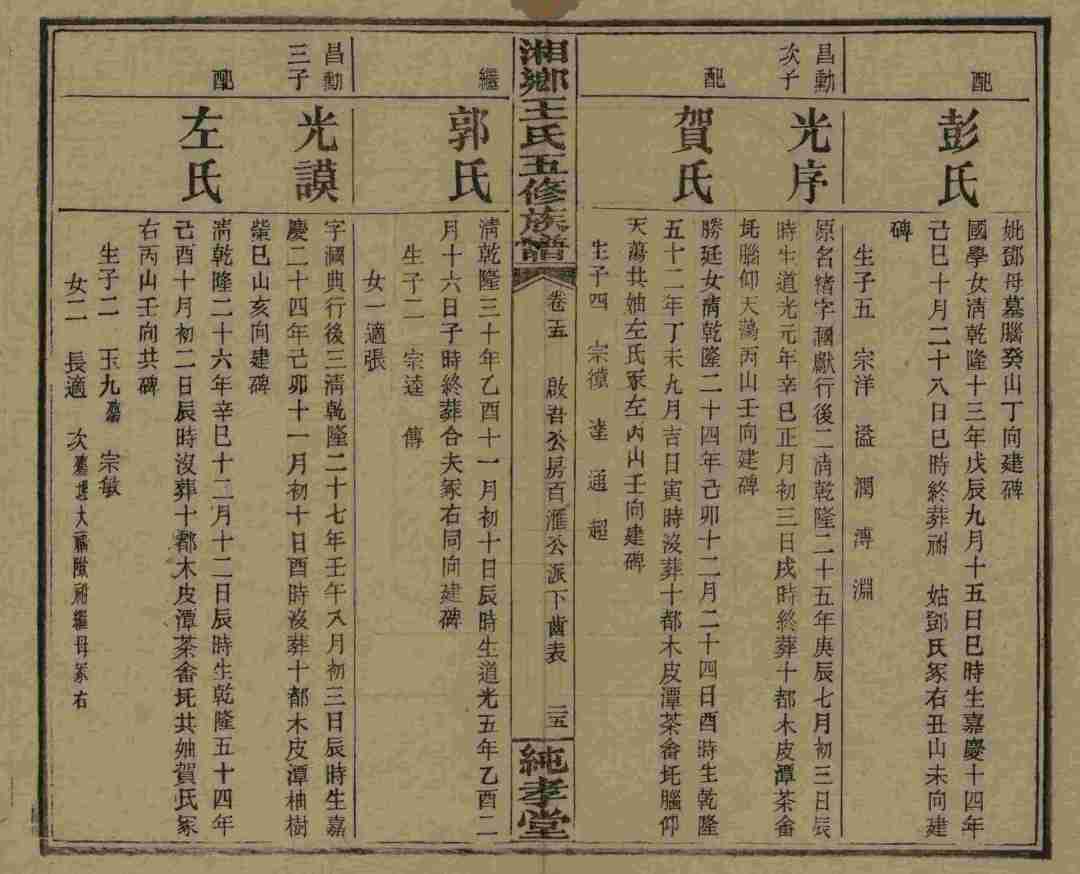 妣鄧母墓腦癸山丁向建碑
配
彭氏
國學女清乾隆十三年戊辰九月十五日巳時生嘉慶十四年
己巳十月二十八日巳時終葬祔 姑鄧氏冢右丑山未向建
碑
生子五 宗洋 溢 潤 溥 淵
昌勳
次子
光序
原名緒字國獻行後二清乾隆二十五年庚辰七月初三日辰
時生道光元年辛巳正月初三日戌時終葬十都木皮潭茶畬
坉腦仰天蕩丙山壬向建碑
配
賀氏
勝廷女清乾隆二十四年己卯十二月二十四日酉時生乾隆
五十二年丁未九月吉日寅時沒葬十都木皮潭茶畬坉腦仰
天蕩共妯左氏冢左丙山壬向建碑
生子四 宗徵 達 通 超
湘鄉王氏五修族譜
卷五 啟吾公房百滙公派下齒表 二五
純孝堂
繼
郭氏
清乾隆三十年乙酉十一月初十日辰時生道光五年乙酉二
月十六日子時終葬合夫冢右同向建碑
生子二 宗逵 傳
女一適張
昌勳
三子
光謨
字國典行後三清乾隆二十七年壬午八月初三日辰時生嘉
慶二十四年己卯十一月初十日酉時沒葬十都木皮潭柚樹
柴巳山亥向建碑
配
左氏
清乾隆二十六年辛巳十二月十二日辰時生乾隆五十四年
己酉十月初二日辰時沒葬十都木皮潭茶畬坉共妯賀氏冢
右丙山壬向共碑
生子二 玉九 宗敏
女二 長適 次 大 祔繼母冢右